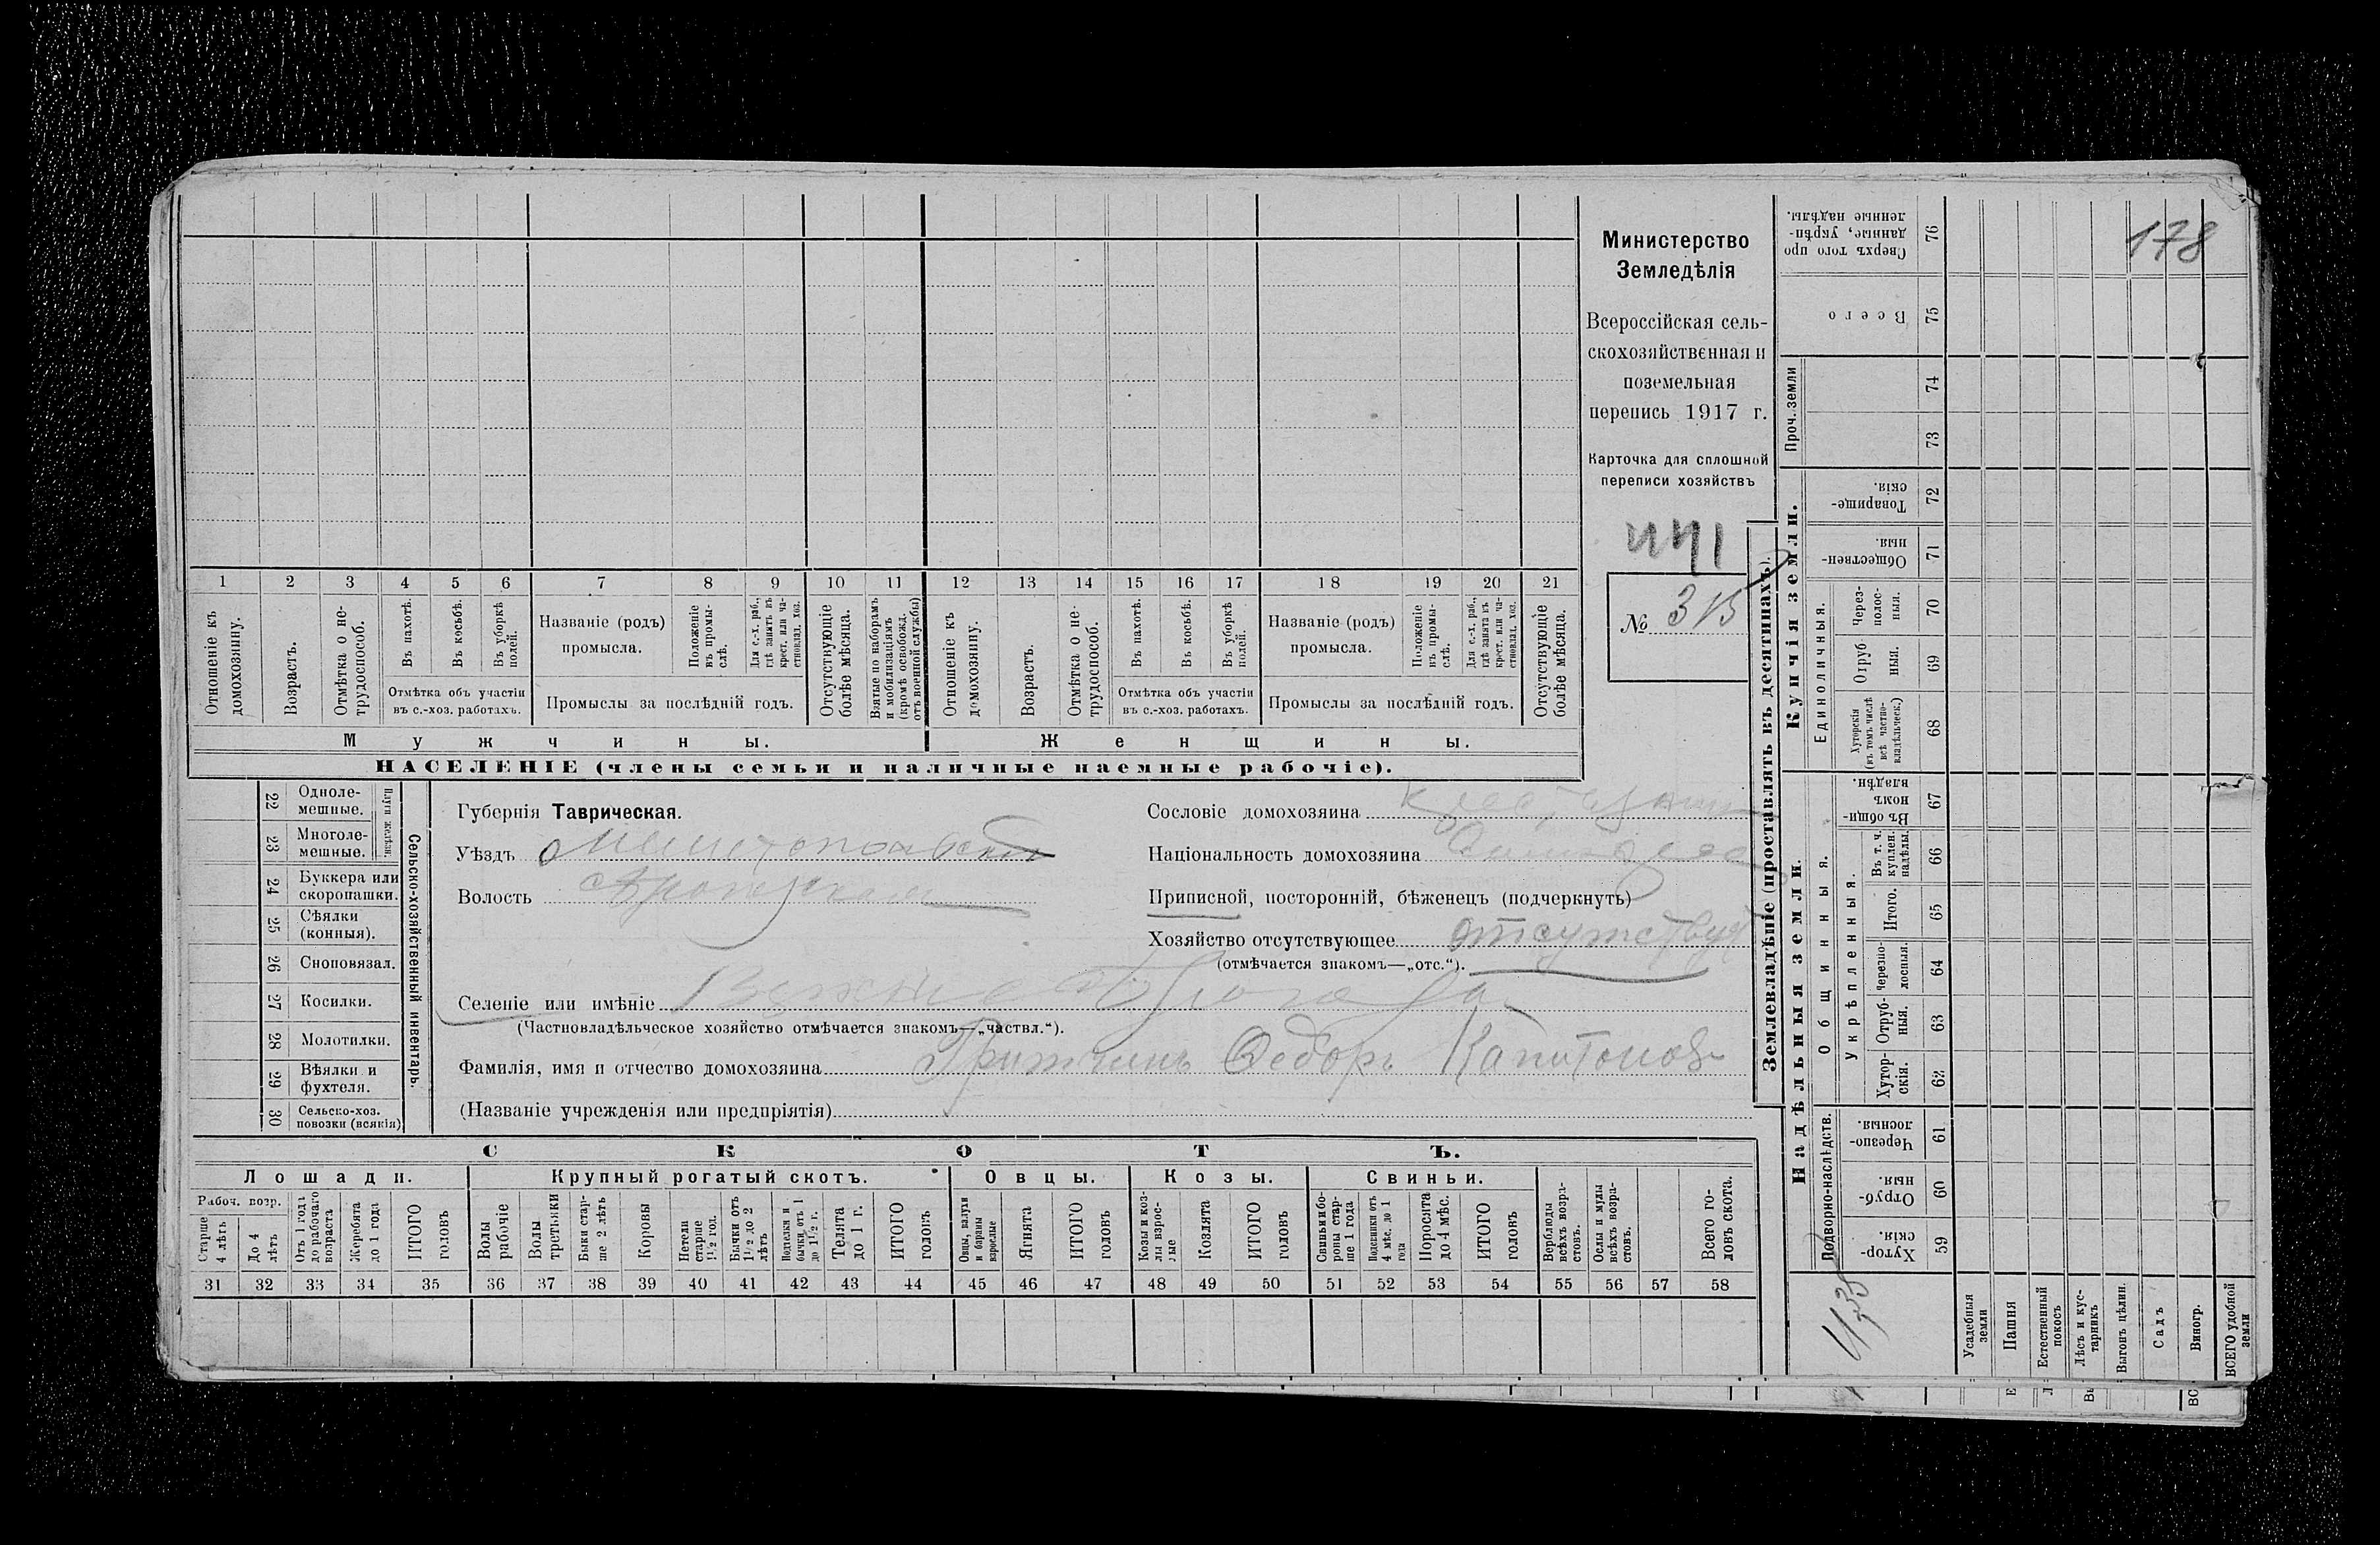 178
Министерство
Земледѣлія
Всероссійская сель-
скохозяйственная и
поземельная
перепись 1917 г.
Карточка для сплошной
переписи хозяйствъ
441
№ 315
1 2 3 4 5 6 7 8 9 10 11 12 13 14 15 16 17 18 19 20 21
Отношеніе къ домохозяину.
Возрастъ.
Отмѣтка о не-трудоспособ.
Въ пахотѣ.
Въ косьбѣ.
Въ уборкѣ полей.
Отмѣтка объ участіи
въ с.-хоз. работахъ.
Названіе (родъ)
промысла.
Положеніе въ промы-слѣ.
Для с.-х. раб., гдѣ занятъ въ крест. или ча-стновлад. хоз.
Промыслы за послѣдній годъ.
Отсутствующіе болѣе мѣсяца.
Взятые по наборамъ и мобилизаціямъ (кромѣ освобожд. отъ военной службы)
Отношеніе къ домохозяину.
Возрастъ.
Отмѣтка о не-трудоспособ.
Въ пахотѣ.
Въ косьбѣ.
Въ уборкѣ полей.
Отмѣтка объ участіи
въ с.-хоз. работахъ.
Названіе (родъ)
промысла.
Положеніе въ промы-слѣ.
Для с.-х. раб., гдѣ занята въ крест. или ча-стновлад. хоз.
Промыслы за послѣдній годъ.
Отсутствующіе болѣе мѣсяца.
Мужчины. Женщины.
НАСЕЛЕНІЕ (члены семьи и наличные наемные рабочіе).
22 Одноле-мешные.
23 Многоле-мешные.
Плуги желѣзн.
24 Буккера или скоропашки.
25 Сѣялки (конныя).
26 Сноповязал.
27 Косилки.
28 Молотилки.
29 Вѣялки и фухтеля.
30 Сельско-хоз. повозки (всякія)
Сельско-хозяйственный инвентарь.
Губернія Таврическая.
Уѣздъ Мелитопольскій
Волость
Сословіе домохозяина
Національность домохозяина
Приписной, посторонній, бѣженецъ (подчеркнуть)
Хозяйство отсутствующее отсутствует
(отмѣчается знакомъ—„отс.“).
Селеніе или имѣніе
(Частновладѣльческое хозяйство отмѣчается знакомъ—„частвл.“).
Фамилія, имя и отчество домохозяина Федоръ Капитонов
(Названіе учрежденія или предпріятія)
СКОТЪ.
Лошади. Крупный рогатый скотъ. Овцы. Козы. Свиньи.
Рабоч. возр.
Старше 4 лѣтъ
До 4 лѣтъ
Отъ 1 года до рабочаго возраста
Жеребята до 1 года
ИТОГО головъ
Волы рабочіе
Волы третьяки
Быки стар-ше 2 лѣтъ
Коровы
Нетели старше 1½ год.
Бычки отъ 1½ до 2 лѣтъ
Нетелки и бычки отъ 1 до 1½ г.
Телята до 1 г.
ИТОГО головъ
Овцы, валухи и бараны взрослые
Ягнята
ИТОГО головъ
Козы и коз-лы взрос-лые
Козлята
ИТОГО головъ
Свиньи и бо-ровы стар-ше 1 года
Подсвинки отъ 4 мѣс. до 1 года
Поросята до 4 мѣс.
ИТОГО головъ
Верблюды всѣхъ возра-стовъ.
Ослы и мулы всѣхъ возра-стовъ.
Всего го-ловъ скота.
31 32 33 34 35 36 37 38 39 40 41 42 43 44 45 46 47 48 49 50 51 52 53 54 55 56 57 58
Землевладѣніе (проставлять въ десятинахъ).
Надѣльныя земли. Купчія земли. Проч. земли
Подворно-наслѣдств.
Общинныя.
Укрѣпленныя.
Единоличныя.
Хутор-скія. 59
Отруб-ныя. 60
Черезпо-лосныя. 61
Хутор-скія. 62
Отруб-ныя. 63
Черезпо-лосныя. 64
Итого. 65
Въ т. ч. куплен. надѣлы 66
Въ общи-номъ владѣн. 67
Хуторскія (въ томъ числѣ всѣ частно-владѣльческ.) 68
Отруб-ныя. 69
Через-полос-ныя. 70
Обществен-ныя. 71
Товарище-скія. 72
73
74
Всего 75
Сверхъ того про-данные, укрѣп-ленные надѣлы. 76
Усадебныя земли
Пашня
Естественный покосъ
Лѣсъ и кус-тарникъ
Выгонъ цѣлин.
Садъ
Виногр.
ВСЕГО удобной земли